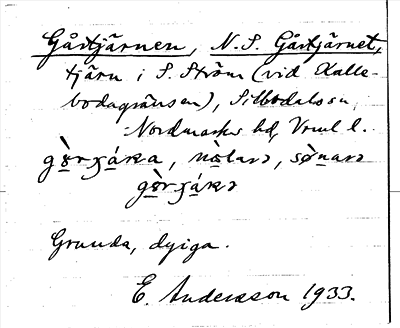 Gåstjärnen, N. S. Gåstjärnet,
tjärn i S. Ström (vid Kalle-
bodagränsen), Silbodals sn,
Nordmarks hd, Vrml l.
gɷ̀rʒáʀa, nòlarə, sø̀narə
gɷ̀rʒáʀə
Grunda, dyiga.
E. Andersson 1933.